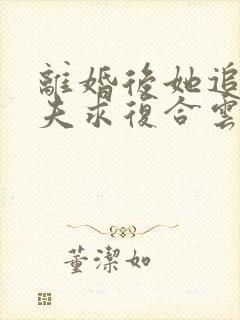 離婚後她追
夫求復合雲
董潔如